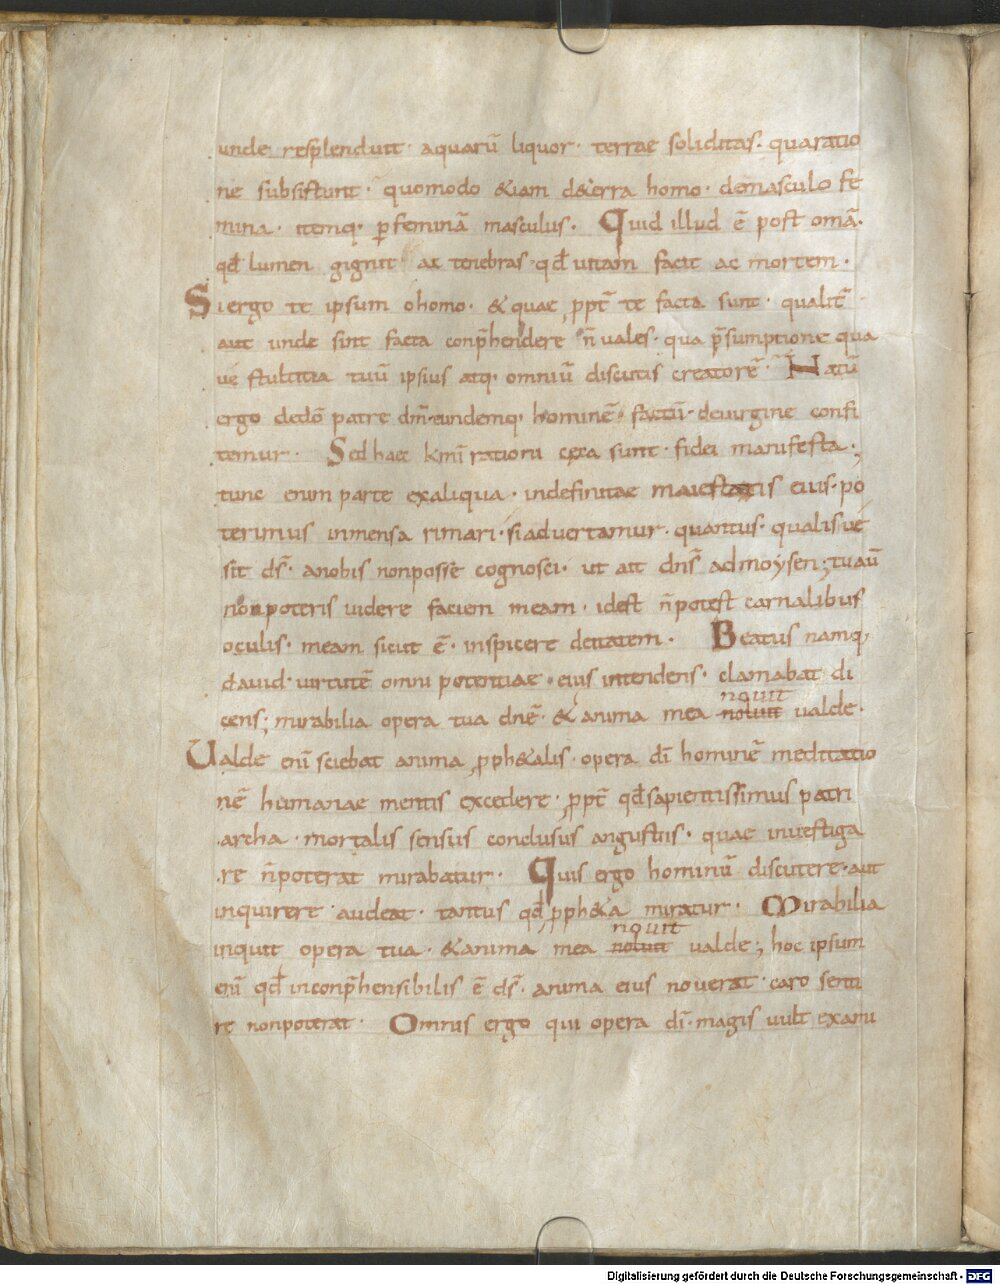 unde resplendunt · aquarū liquor · terrae soliditas · qua ratio
ne subsistunt · quomodo &iam d&erra homo · demasculo fe
mina · itemq· ꝑ feminā masculus · Quid illud ē post omā·
qđ lumen gignit ac tenebras · qđ uitam facit ac mortem ·
Si ergo te ipsum o homo · & quae ꝓpt̄ te facta sunt · qualit̄
aut unde sint facta conp̄hendere n̄ uales · qua p̄sumptione qua
ue stultitia tuū ipsius atq· omniū discutis creatorē · Natū
ergo dedō patre dm̄ · eundemq· hominē · factū · deuirgine confi
temur · Sed haec fidei manifesta ;
tunc enim parte exaliqua · indefinitae maiestatis eius · po
terimus inmensa rimari · si aduertamur · quantus · qualisue
sit ds̄ · anobis nonposse cognosci · ut ait dns̄ admoysen ; tuaū
nonpoteris uidere faciem meam · idest n̄potest carnalibus
oculis · meam sicut ē · inspicere deitatem · Beatus namq·
dauid · uirtutē omni potentiae · eius intendens · clamabat di
nouit
cens ; mirabilia opera tua dnē · & anima mea noluit ualde ·
Ualde enī sciebat anima ꝓph&alis · opera dī hominē meditatio
nē humanae mentis excedere · ꝓpt̄ qđ sapientissimus patri
archa · mortalis sensus conclusus angustiis · quae inuestiga
re n̄poterat mirabatur · Quis ergo hominū discutere · aut
inquirere audeat · tantus qđ ꝓph&a miratur · Mirabilia
nouit
inquit opera tua · & anima mea noluit ualde ; hoc ipsum
enī qđ inconp̄hensibilis ē ds̄ · anima eius nouerat · caro senti
re nonpoterat · Omnis ergo qui opera dī · magis uult exami
Digitalisierung gefördert durch die Deutsche Forschungsgemeinschaft - DFG